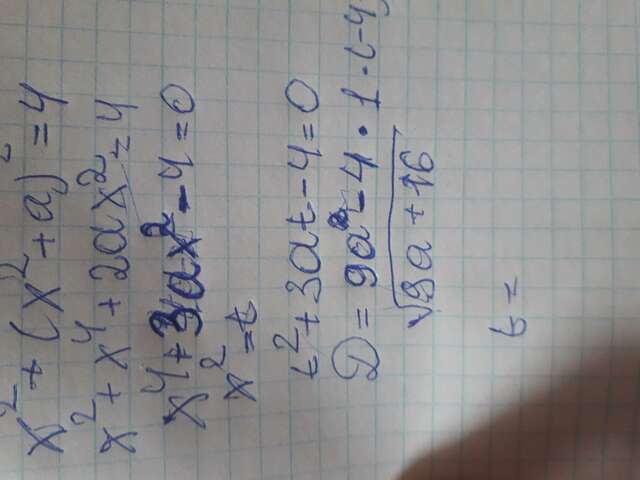 x² + (x² + a)² = 4
x² + x⁴ + 2ax² = 4
x⁴ + 3ax² - 4 = 0
x² = t
t² + 3at - 4 = 0
D = 9a² - 4 · 1 · (-4)
√9a + 16
t =